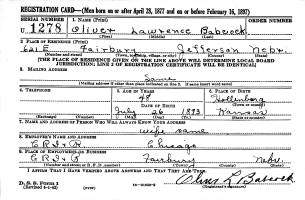 REGISTRATION CARD—(Men born on or after April 28, 1877 and on or before February 16, 1897)
SERIAL NUMBER 1. NAME (Print) ORDER NUMBER
U 1278 Oliver Lawrence Babcock
2. PLACE OF RESIDENCE (Print)
621 E Fairbury Jefferson Nebr.
[THE PLACE OF RESIDENCE GIVEN ON THE LINE ABOVE WILL DETERMINE LOCAL BOARD JURISDICTION; LINE 2 OF REGISTRATION CERTIFICATE WILL BE IDENTICAL]
3. MAILING ADDRESS
Same
[Mailing address if other than place indicated on line 2. If same insert word same]
4. TELEPHONE 5. AGE IN YEARS 6. PLACE OF BIRTH
48 Hollenberg
DATE OF BIRTH
July 26 1893 Kansas
(Exchange) (Number) (Mo.) (Day) (Yr.) (State or country)
7. NAME AND ADDRESS OF PERSON WHO WILL ALWAYS KNOW YOUR ADDRESS
wife same
8. EMPLOYER'S NAME AND ADDRESS
CRI&P Chicago
9. PLACE OF EMPLOYMENT OR BUSINESS
CRI&P Fairbury Nebr.
(Number and street or R. F. D. number) (Town) (County) (State)
I AFFIRM THAT I HAVE VERIFIED ABOVE ANSWERS AND THAT THEY ARE TRUE.
D. S. S. Form 1
(Revised 4-1-42) (Registrant's signature)